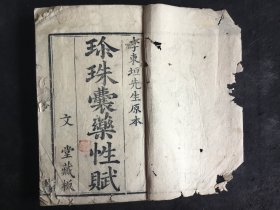 李東垣先生原本
珍珠囊藥性賦
文堂藏板